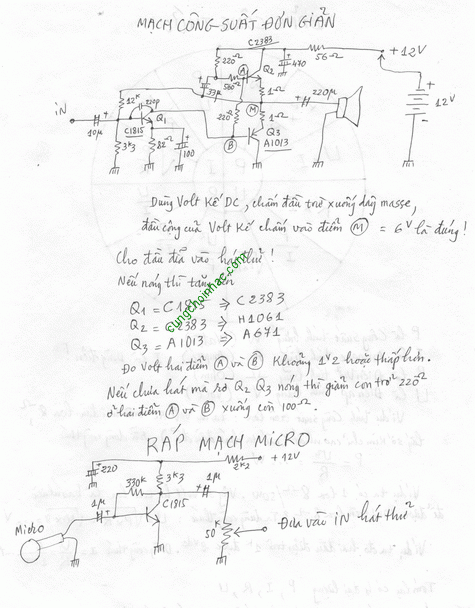 MẠCH CÔNG-SUẤT ĐƠN GIẢN
C2383
220Ω
56Ω
+12V
A
Q2
470
33μ
580Ω
1Ω
220μ
12K
220p
iN
Q1
220Ω
M
12V
10μ
C1815
1Ω
3k3
82Ω
100
B
Q3
A1013
Dùng Volt Kế DC, chấm đầu trừ xuống dây masse,
đầu cộng của Volt Kế chấm vào điểm M = 6V là đúng!
Cho đầu đĩa vào hát thử!
Nếu nóng thì tăng lên
Q1 = C1815 ⇒ C2383
Q2 = C2383 ⇒ H1061
Q3 = A1013 ⇒ A671
cungchoinhac.com
Đo Volt hai điểm A và B Khoảng 1V2 hoặc thấp hơn.
Nếu chưa hát mà rờ Q2 Q3 nóng thì giảm con trở 220Ω
ở hai điểm A và B xuống còn 100Ω.
RÁP MẠCH MICRO
220
2k2
+12V
3k3
1μ
330K
1μ
C1815
Micro
50K
Đưa vào iN hát thử